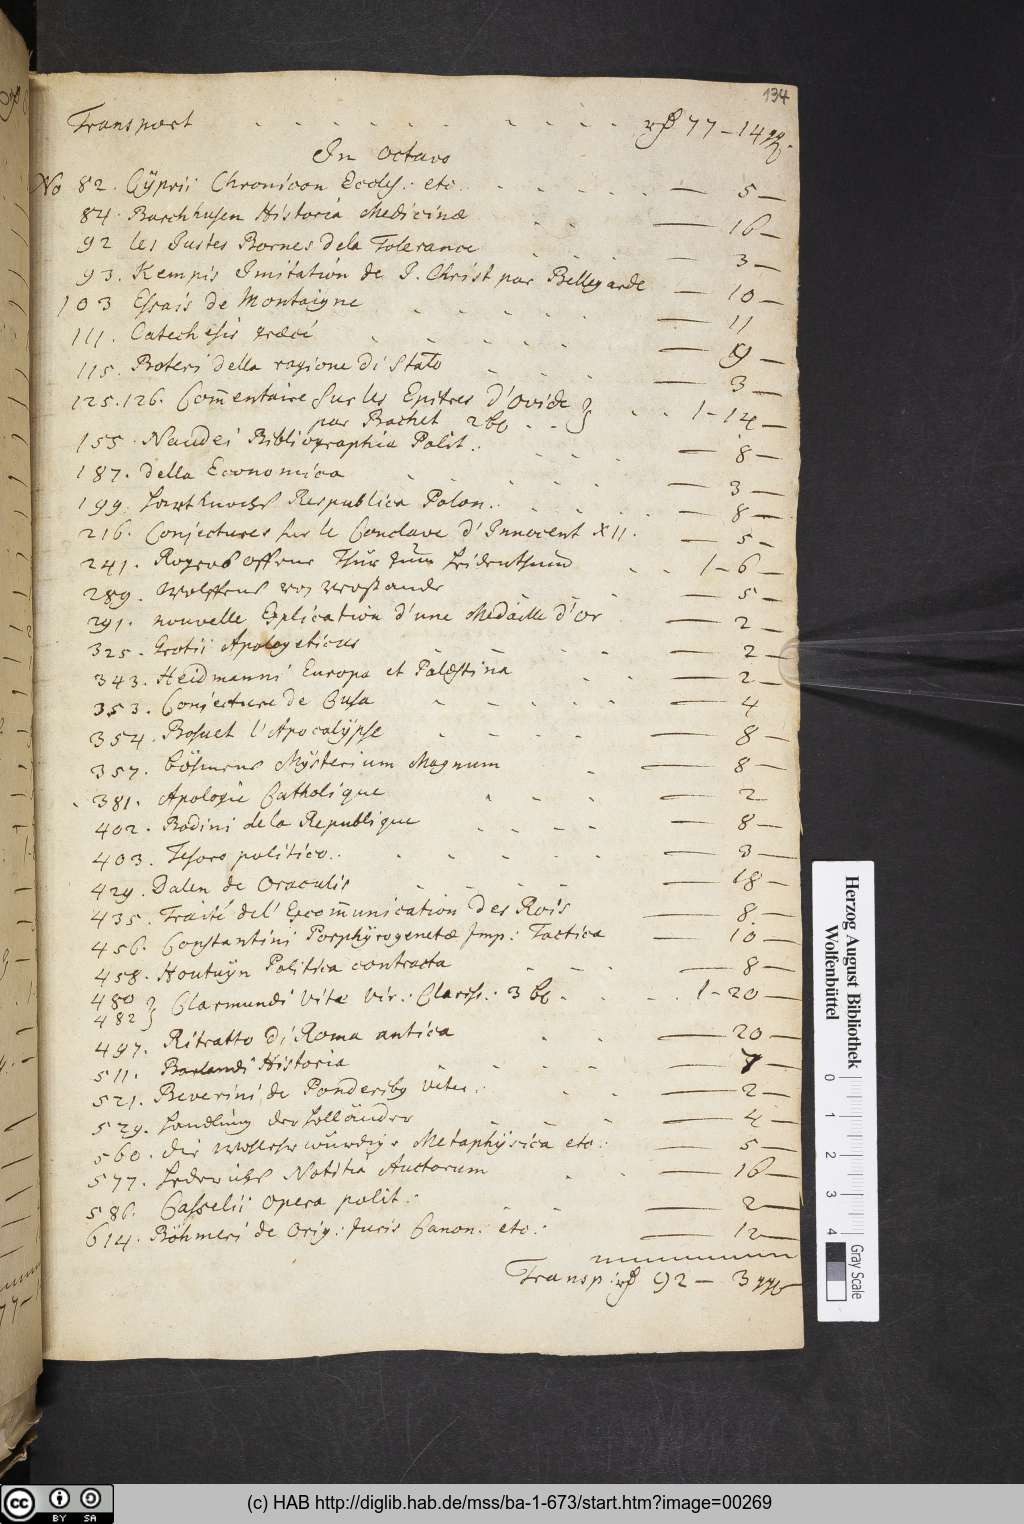 134
Transport rthl 77 - 14 ggr.
In octavo
No 82. Cÿprii Chronicon Eccles: etc. — 5 —
84. Barchhusen Historia Medicinæ — 16 —
92 les Justes Bornes dela Tolerance — 3 —
93. Kempis Imitation de J. Christ par Bellegarde — 10 —
103 Essais de Montaigne — 11
111. Catechesis græci — 9 —
115. Boteri della ragione di Stato — 3 —
125.126. Com̅entaire sur les Epitres d'Ovide } 1 - 14 —
par Bachet 2 bc
155. Naudei Bibliographia Polit. — 8 —
187. della Economica — 3 —
199. Hartknochs Respublica Polon. — 8 —
216. Conjectures sur le Conclave d'Innocent XII. — 5 —
241. Rogers offene Thür zum Heidenthum 1 - 6 —
289. Wolffens von Verstande — 5 —
291. nouvelle Explication d'une Medaille d'or — 2 —
325. Grotii Apologeticus — 2 —
343. Heidmanni Europa et Palæstina — 2 —
353. Conjecture de Cusa — 4
354. Bosuet l'Apocalÿpse — 8 —
357. Böhmens Mÿsterium Magnum — 8 —
381. Apologie Catholique — 2
402. Bodini de la Republique — 8 —
403. Tesoro politico. — 3 —
429. Dalen de Oraculis — 18 —
435. Traité del' Excom̅unication des Rois — 8 —
456. Constantini Porphÿrogenetæ Imp: Tactica — 10 —
458. Houtuÿn Politica contracta — 8 —
480 } Clarmundi Vitæ Vir: Clariss: 3 bc. 1 - 20 —
482
497. Ritratto di Roma antica — 20 —
511. Barlandi Historia — 7 —
521. Beverini de Ponderibg vete: — 2 —
529. Handlung der Holländer — 4 —
560. die Wohlehrwürdige Metaphÿsica etc: — 5 —
577. Hederichs Notitia Auctorum — 16 —
586. Casselii Opera polit: — 2 —
614. Böhmeri de Orig: Juris Canon: etc: — 12 —
Transp: rthl 92 - 3 ggr
Herzog August Bibliothek
Wolfenbüttel
0 1 2 3 4
Gray Scale
cc BY SA
(c) HAB http://diglib.hab.de/mss/ba-1-673/start.htm?image=00269